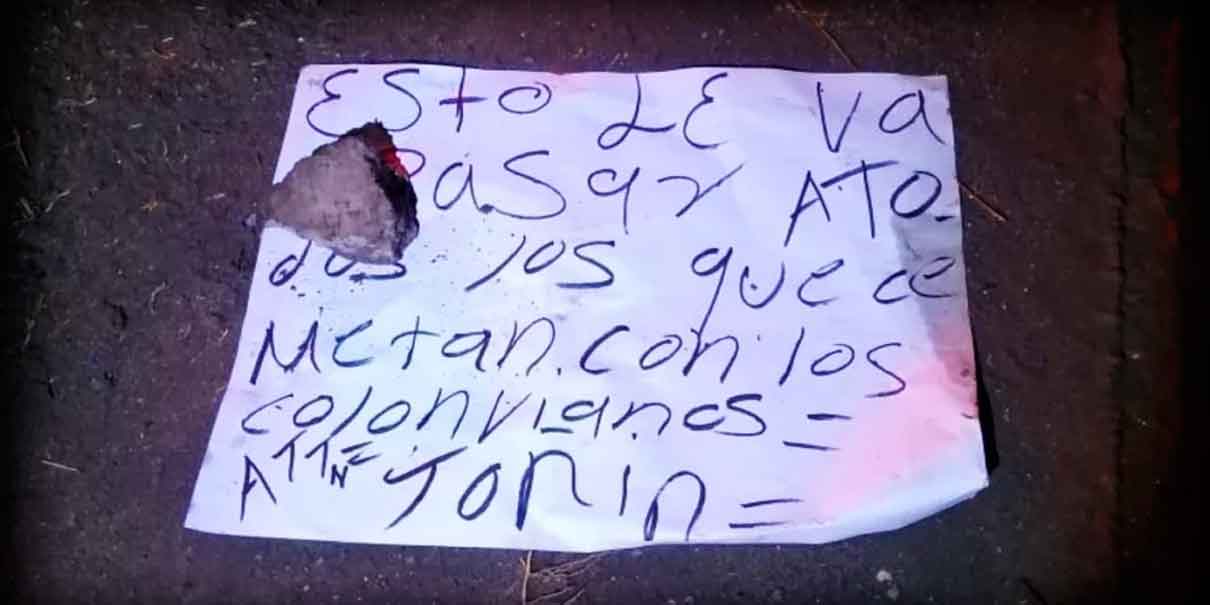 ESTO LE Va
PaSar ATO-
dos los que ce
Metan. con los
colonvianos =
ATTN= TOÑIN =